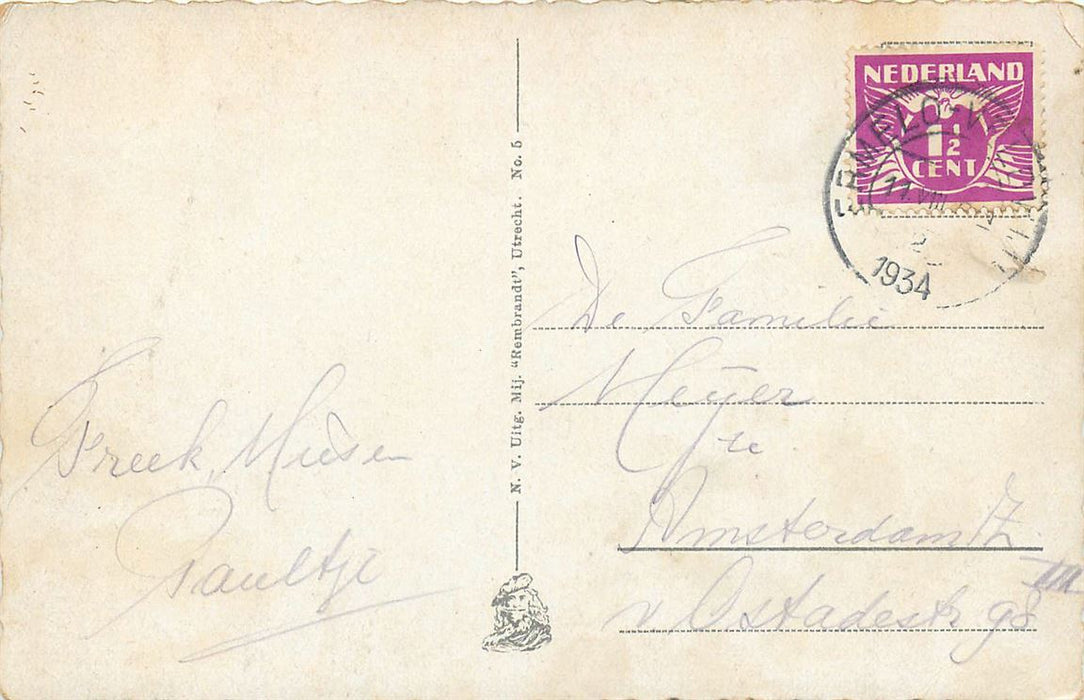 Freek, Mies en
Paultje
N. V. Uitg. Mij. "Rembrandt", Utrecht. No. 5
NEDERLAND
1½
CENT
ERMELO-V
11 VIII
2
1934
De Familie
Meijer
Amsterdam Z
v Ostadestr 98 III